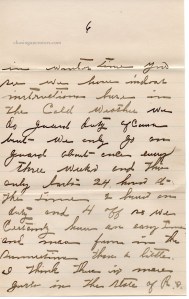 6
in winter time you
see we have indoor
instructions here in
the Cold Weather we
do guard duty of course
but we only go on
Guard about once every
three weeks and then
only lasts 24 hours
the time 2 hours on
duty and 4 off so we
Certainly have an easy
and mean
sometimes than a little
I think there is
just in the State of R.